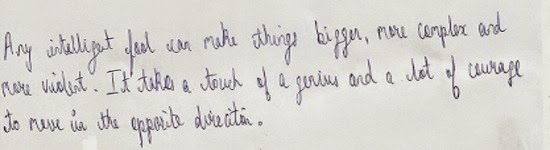 Any intelligent fool can make things bigger, more complex and
more violent. It takes a touch of a genius and a lot of courage
to move in the opposite direction.